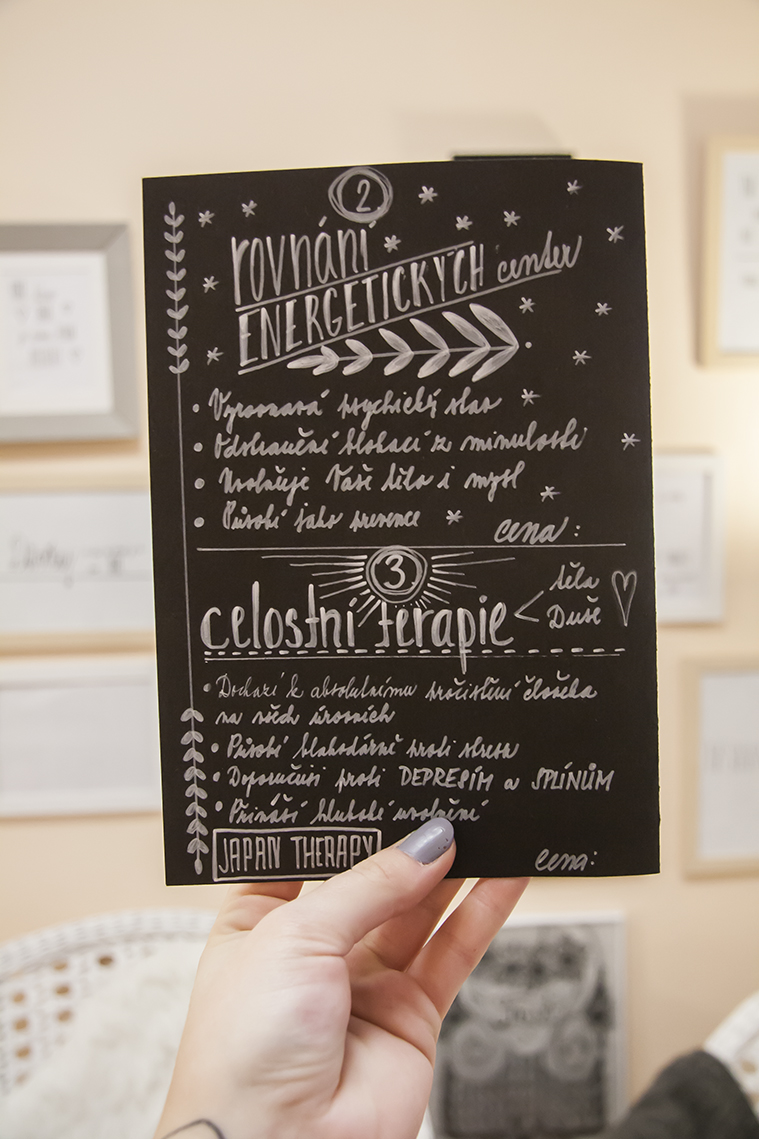 2
rovnání
ENERGETICKÝCH center
• Vyrovnává psychický stav
• Odstranění blokací z minulosti
• Uvolňuje Vaše tělo i mysl
• Působí jako prevence
cena:
3
celostní terapie < těla
Duše
• Dochází k absolutnímu pročistění člověka
na všech úrovních
• Působí blahodárně proti stresu
• Doporučuji proti DEPRESÍM a SPLÍNŮM
• Přináší hluboké uvolnění
JAPAN THERAPY
cena: